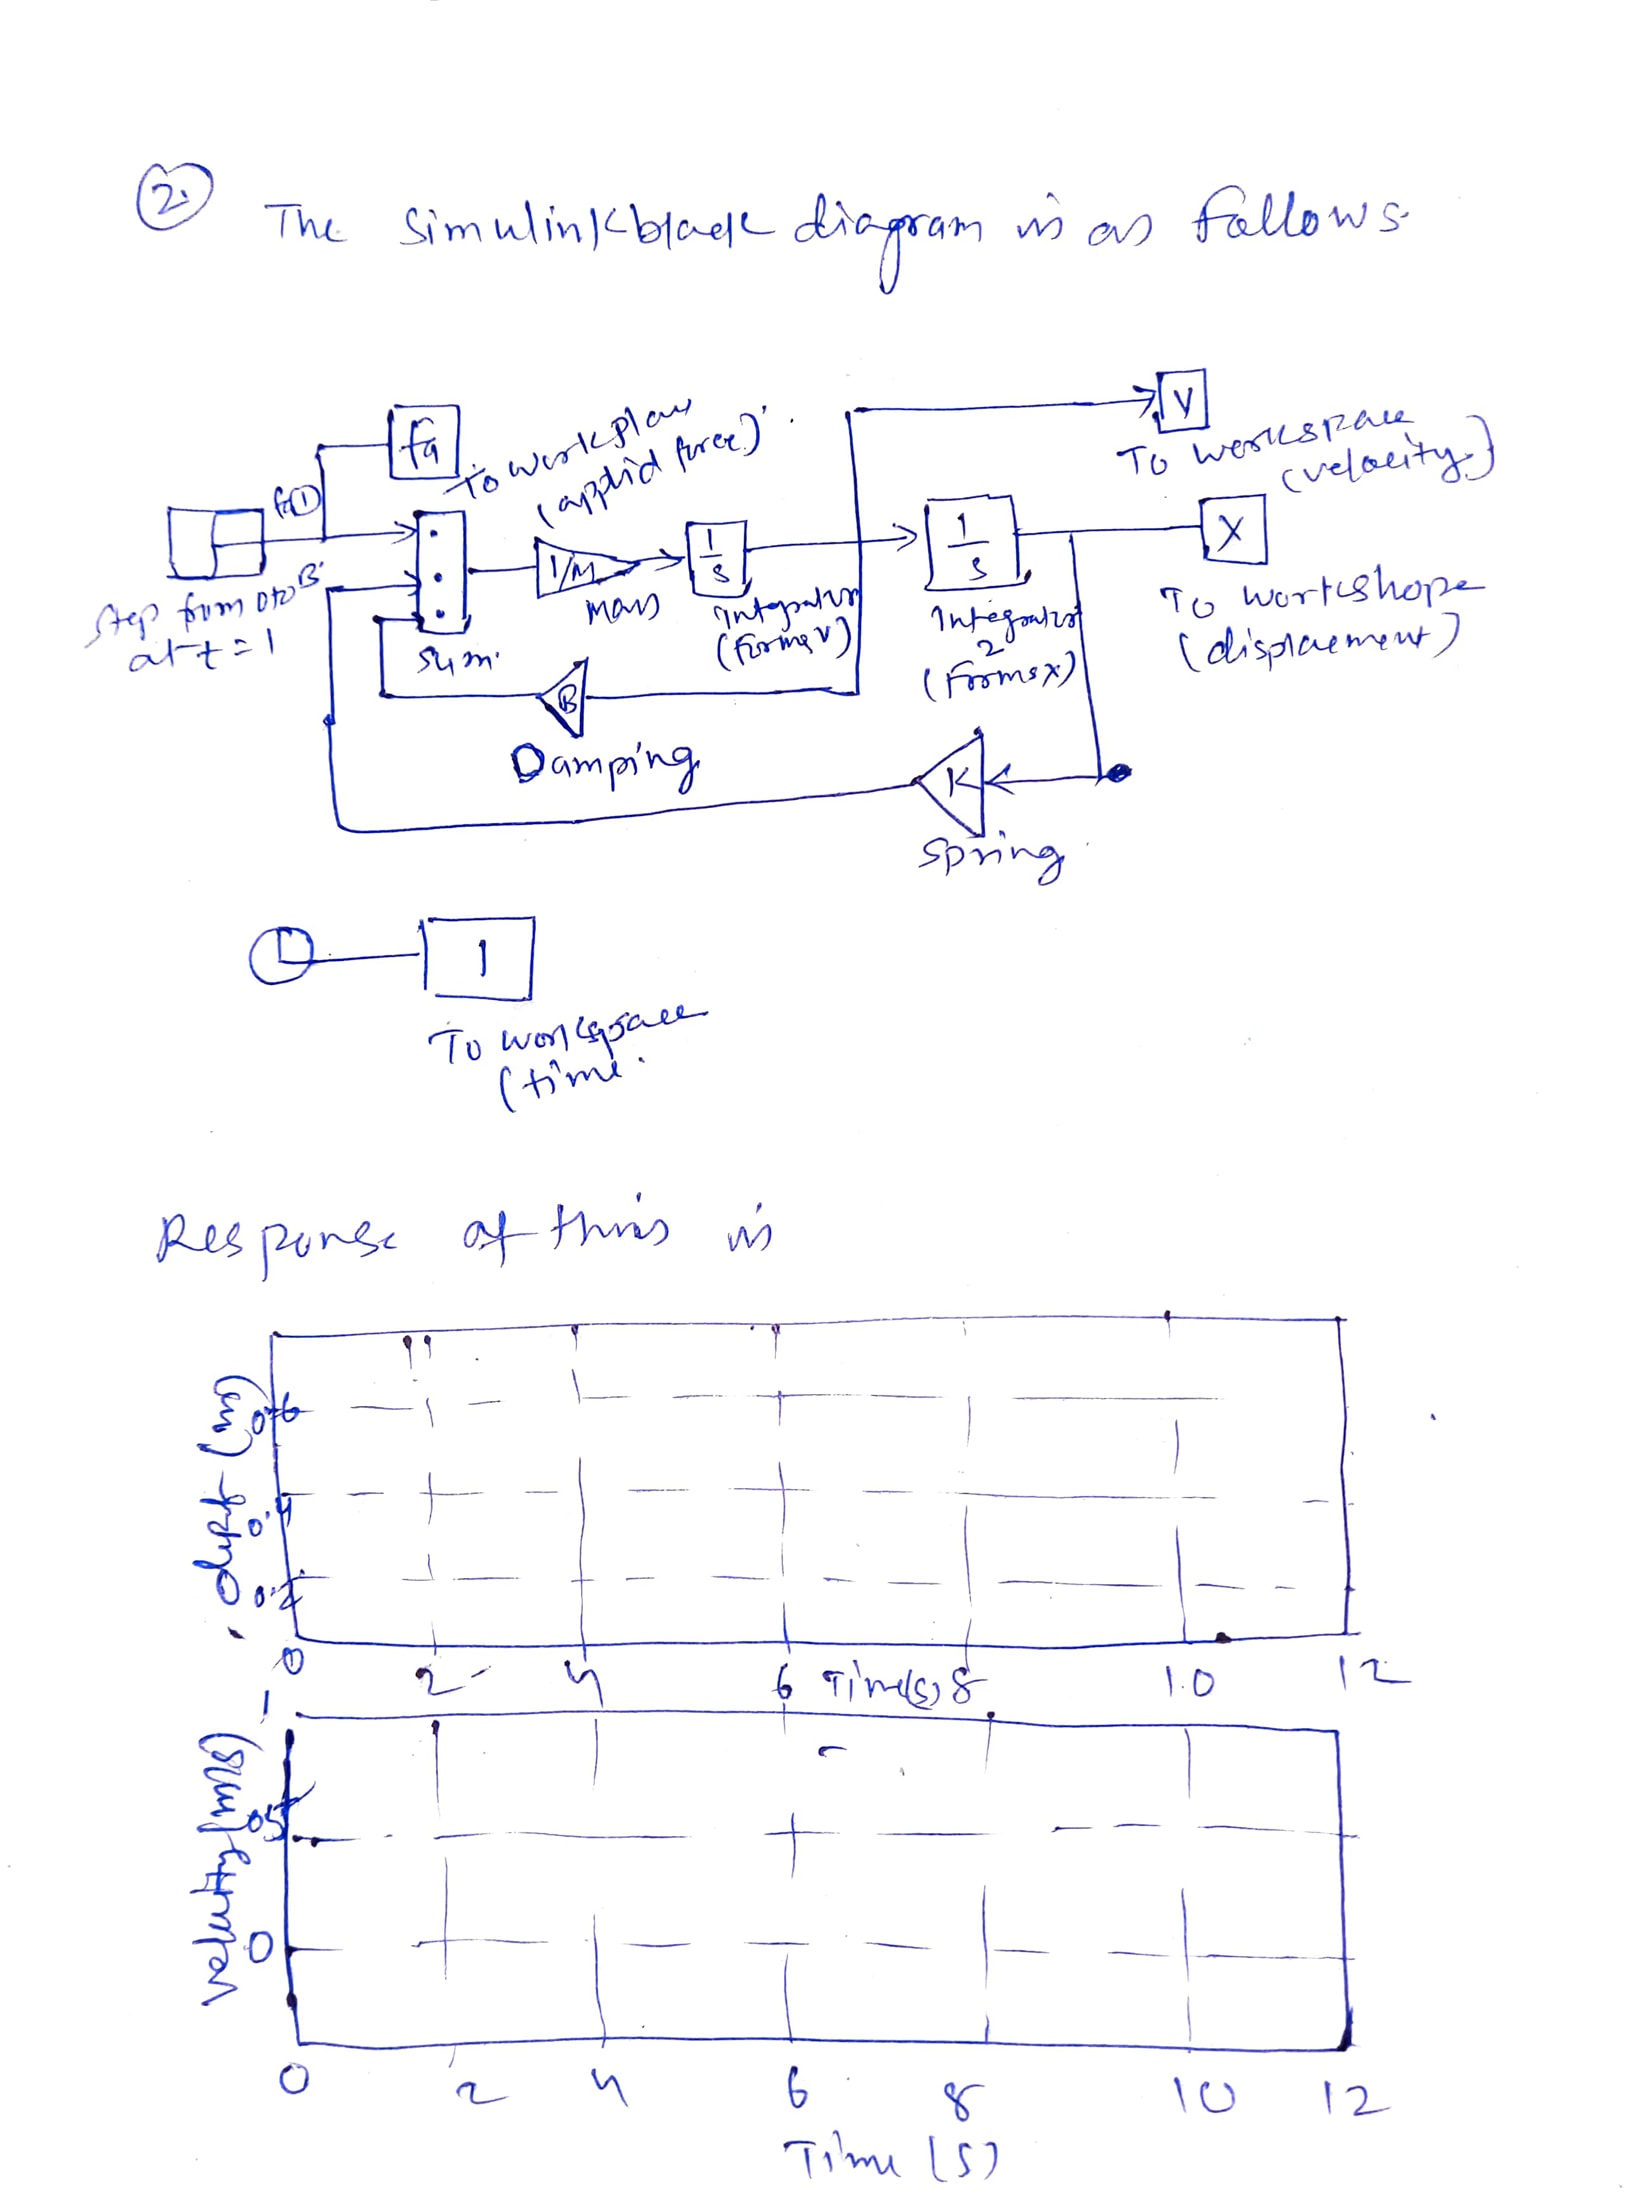 2.
The Simulink black diagram is as follows.
fa
To workplan
(applid force)
V
To workspace
(velocity)
fa(1)
1/M
mass
1/s
Integrator
(Forms v)
1/s
Integrator
2
(Forms x)
X
To workshope
(displaement)
Step from 0 to B
at t = 1
sum.
B
Damping
K
Spring
1
To workspace
(time.
Response of this is
(m)
0.6
0.4
0.2
0 2 4 6 Time(s) 8 10 12
1
velocity (m/s)
0.5
0
0 2 4 6 8 10 12
Time (s)